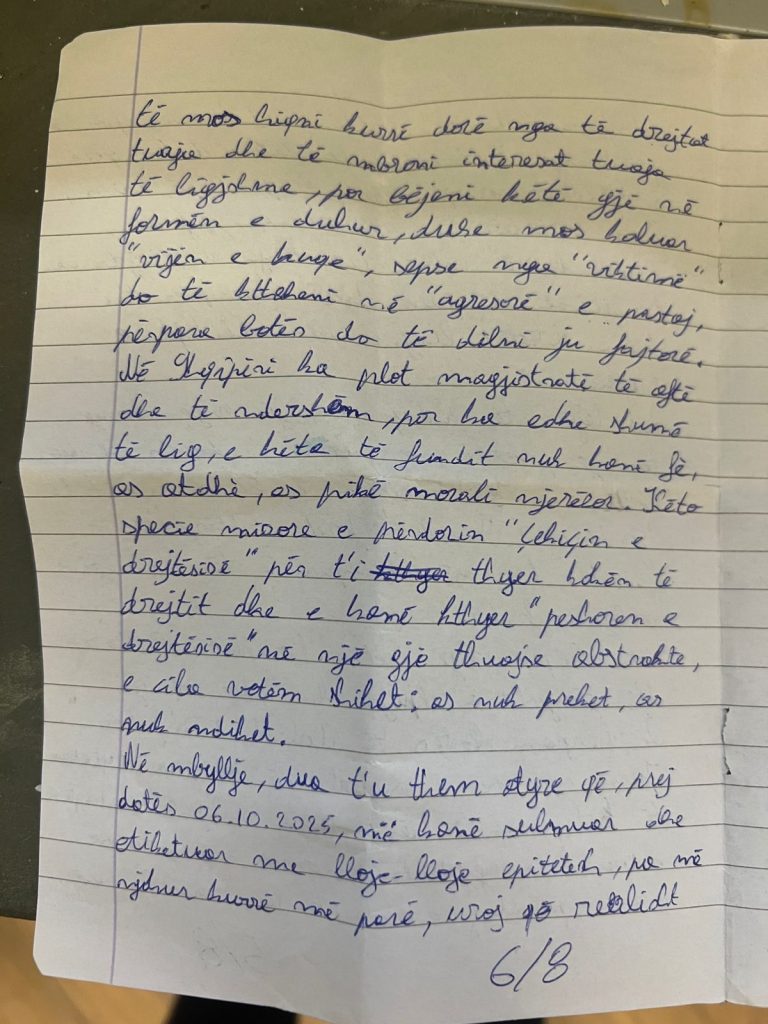 të mos hiqni kurrë dorë nga të drejtat
tuaja dhe të mbroni interesat tuaja
të ligjshme, por bëjeni këtë gjë në
formën e duhur, duke mos kaluar
"vijën e kuqe", sepse nga "viktimë"
do të ktheheni në "agresorë" e pastaj,
përpara botës do të dilni ju fajtorë.
Në Shqipëri ka plot magjistratë të aftë
dhe të ndershëm, por ka edhe shumë
të lig, e këta të fundit nuk kanë fe,
as atdhe, as pikë morali njerëzor. Këto
specie mizore e përdorin "Çekiçin e
drejtësisë" për t'i thyer kokën të
drejtit dhe e kanë kthyer "peshoren e
drejtësisë" në një gjë thuajse abstrakte,
e cila vetëm shihet; as nuk preket, as
nuk ndihet.
Në mbyllje, dua t'u them atyre që, prej
datës 06.10.2025, më kanë sulmuar dhe
etiketuar me lloje-lloje epitetesh, pa më
njohur kurrë më parë, uroj që realisht
6/8